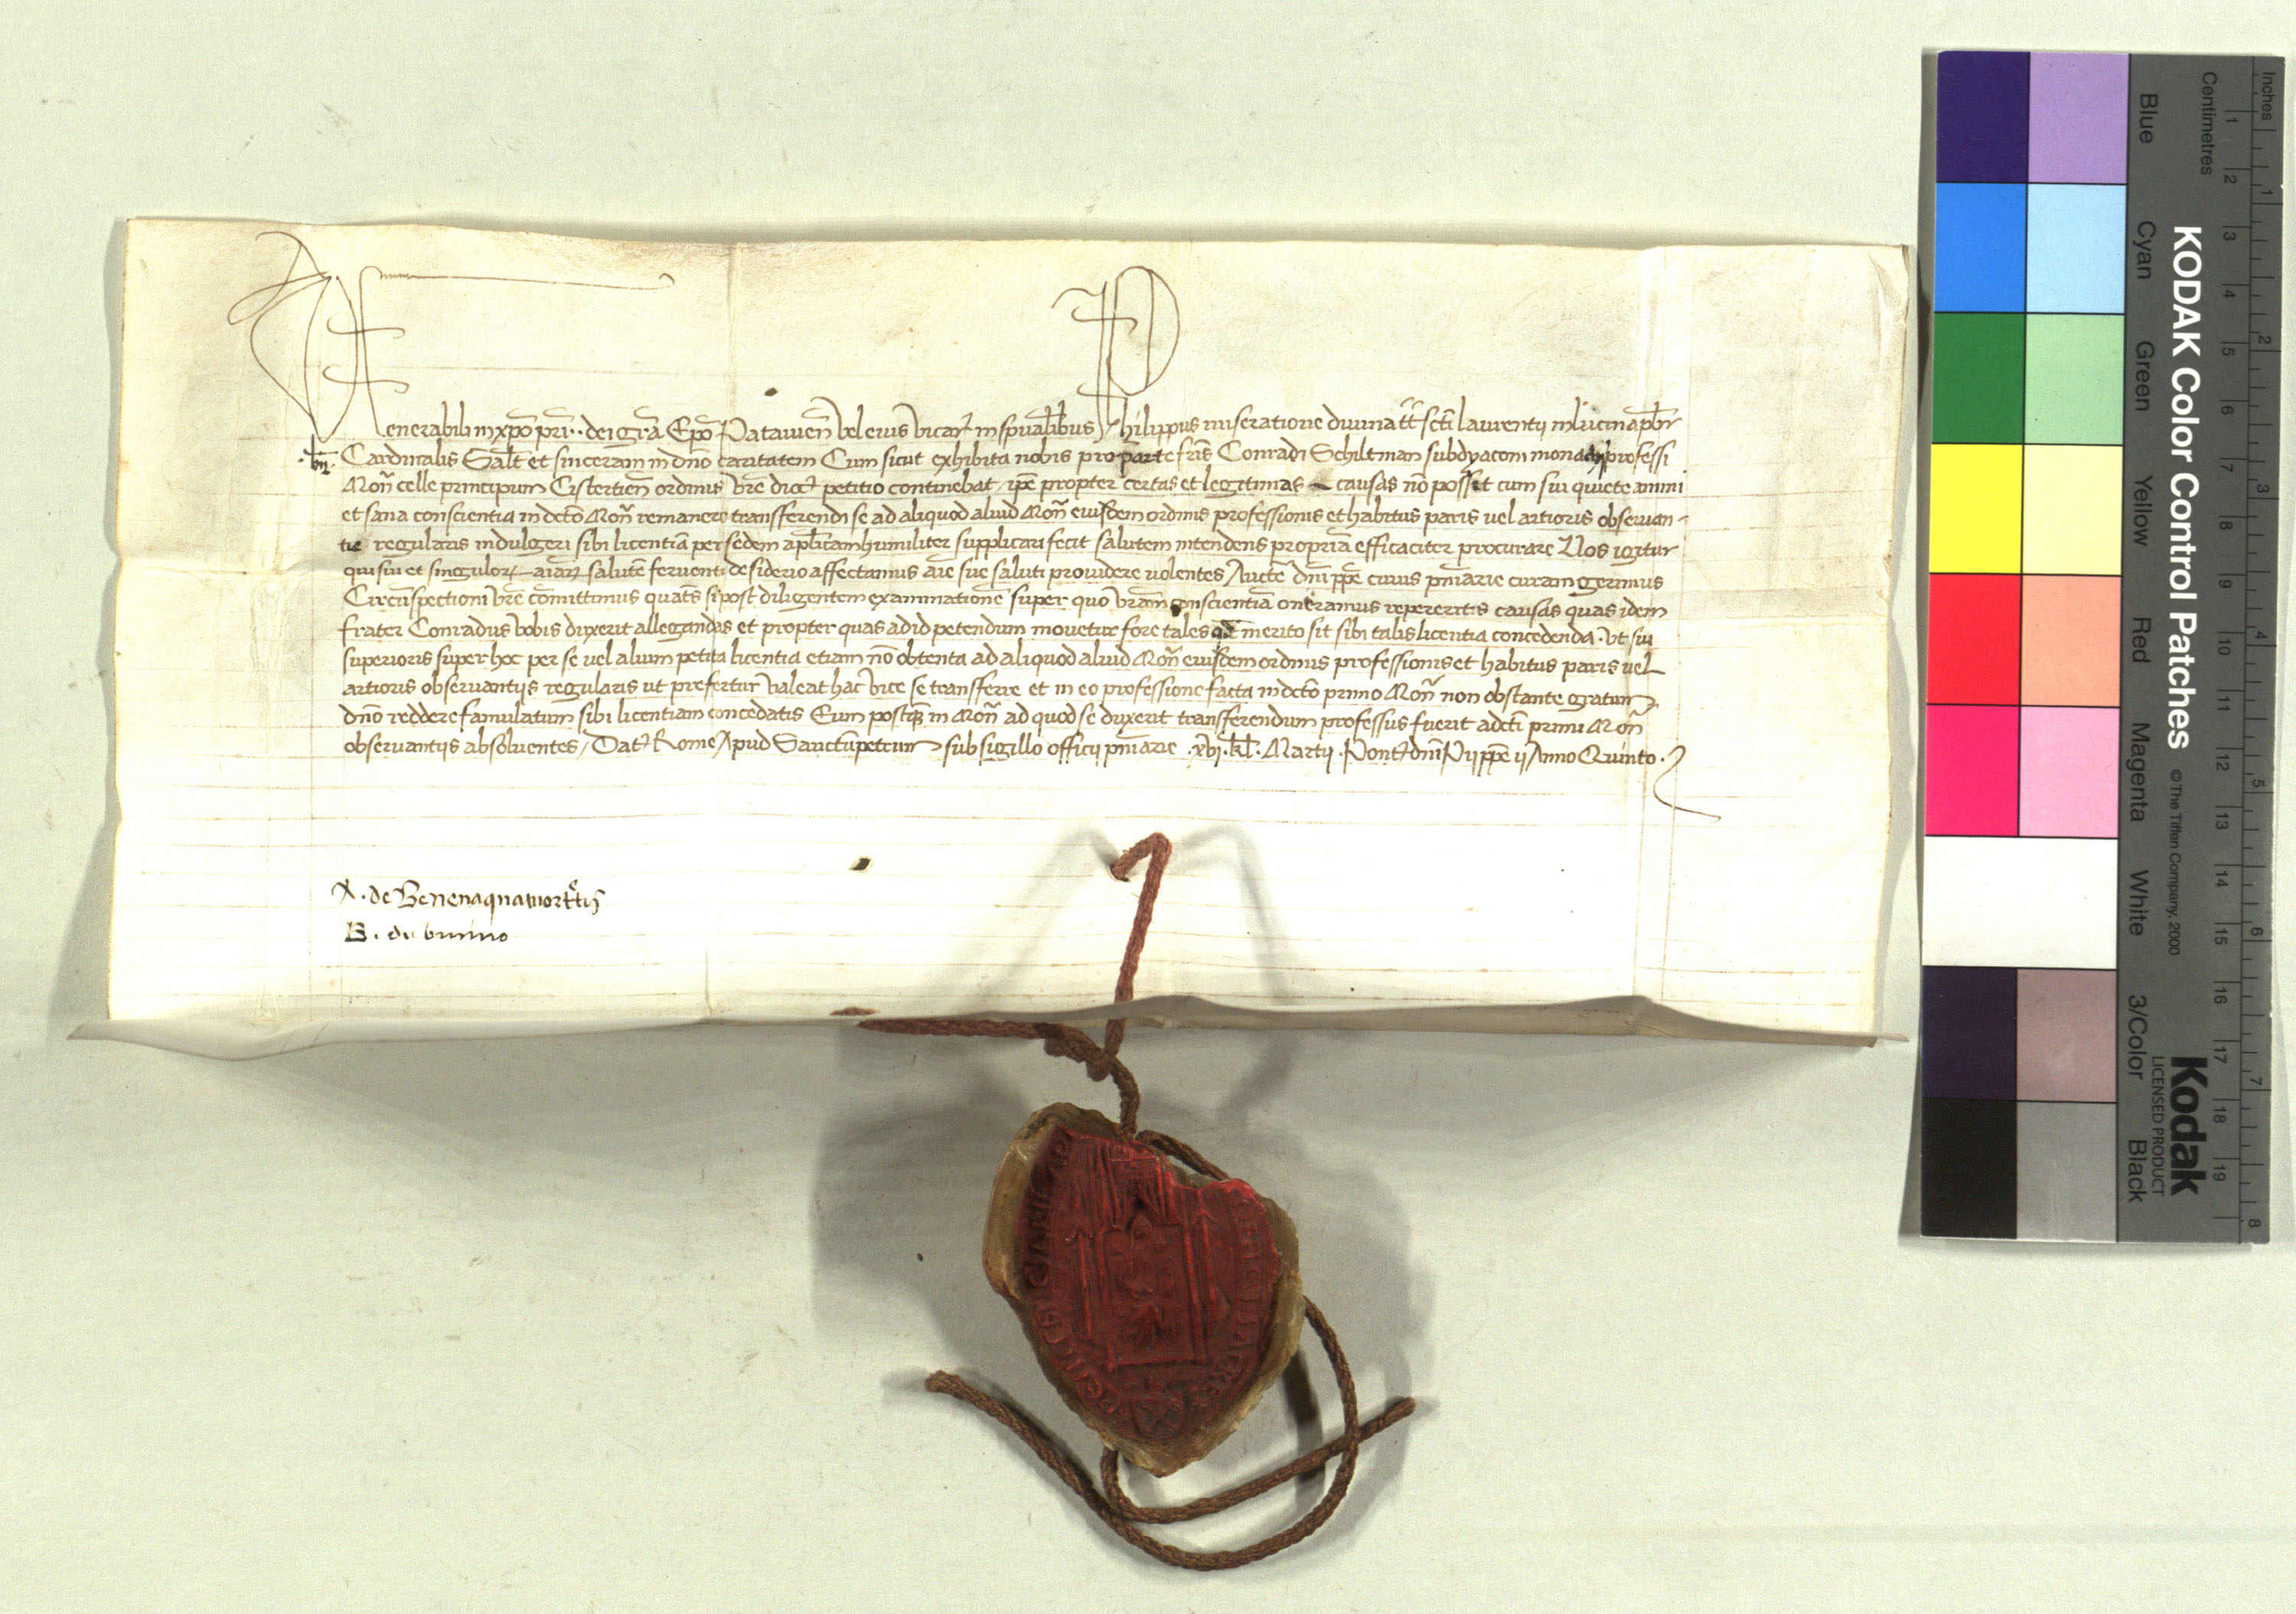 Venerabili in xpo pri · · dei gra Epo Patauien vel eius vicar in spualibus Philippus miseratione diuina tt scti laurentij in lucina pbr
Cardinalis Salt et sinceram in dno caritatem Cum sicut exhibita nobis pro parte fris Conradi Schiltman subdyaconi monachi professi
Mon celle principum Cistertien ordinis vre dioc petitio continebat, ipe propter certas et legitimas causas no possit cum sui quiete animi
et sana conscientia in dcto Mon remanere transferendi se ad aliquod aliud Mon eiusdem ordinis professionis et habitus paris uel artioris obseruan-
tie regularis indulgeri sibi licentia per sedem aplicam humiliter supplicari fecit salutem intendens propria efficaciter procurare Nos igitur
qui sui et singulor aiar salute feruenti desiderio affectamus aie sue saluti prouidere uolentes Aucte dni ppe cuius pniarie curam gerimus
Circuspectioni vre comittimus quats si post diligentem examinatione super quo vram conscientia oneramus repereritis causas quas idem
frater Conradus vobis duxerit allegandas et propter quas ad id petendum mouetur fore tales qd merito sit sibi talis licentia concedenda · vt sui
superioris super hoc per se uel alium petita licentia etiam no obtenta ad aliquod aliud Mon eiusdem ordinis professionis et habitus paris uel
artioris obseruantijs regularis ut prefertur valeat hac vice se transferre et in eo professione facta in dcto primo Mon non obstante gratum
dno reddere famulatum sibi licentiam concedatis Eum postq in Mon ad quod se duxerit transferendum professus fuerit a dcti primi Mon
obseruantijs absoluentes, Dat Rome Apud Sanctupetrum sub sigillo officij pniarie · xvj · kl · Martij · Pont dni Pij ppe ij Anno Quinto ·
A · de
B · de
KODAK Color Control Patches
© The Tiffen Company, 2000
Kodak
LICENSED PRODUCT
Inches
1 2 3 4 5 6 7 8
Centimetres
1 2 3 4 5 6 7 8 9 10 11 12 13 14 15 16 17 18 19
Blue Cyan Green Yellow Red Magenta White 3/Color Black